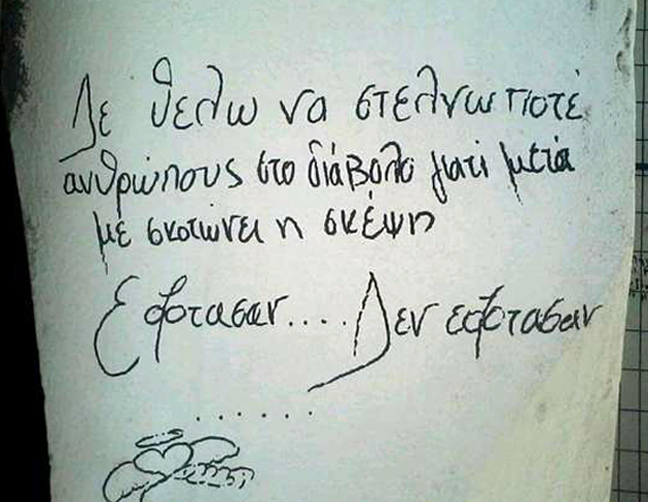 Δε θελω να στελνω ποτέ
ανθρώπους στο διάβολο γιατί μετά
με σκοτώνει η σκέψη
Εφτασαν.... Δεν εφτασαν
......